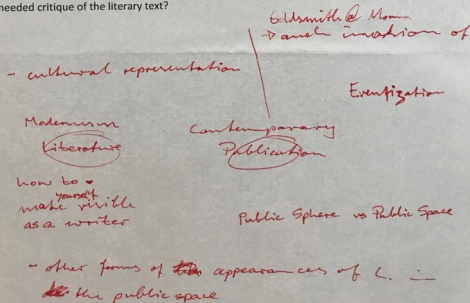 needed critique of the literary text?
Goldsmith @ Moma
→ and invasion of
~ cultural representation
Eventization
Modernism
Contemporary
Literature
Publication
how to
yourself
make visible
as a writer
Public Sphere vs Public Space
- other forms of appearances of L. in
the public space